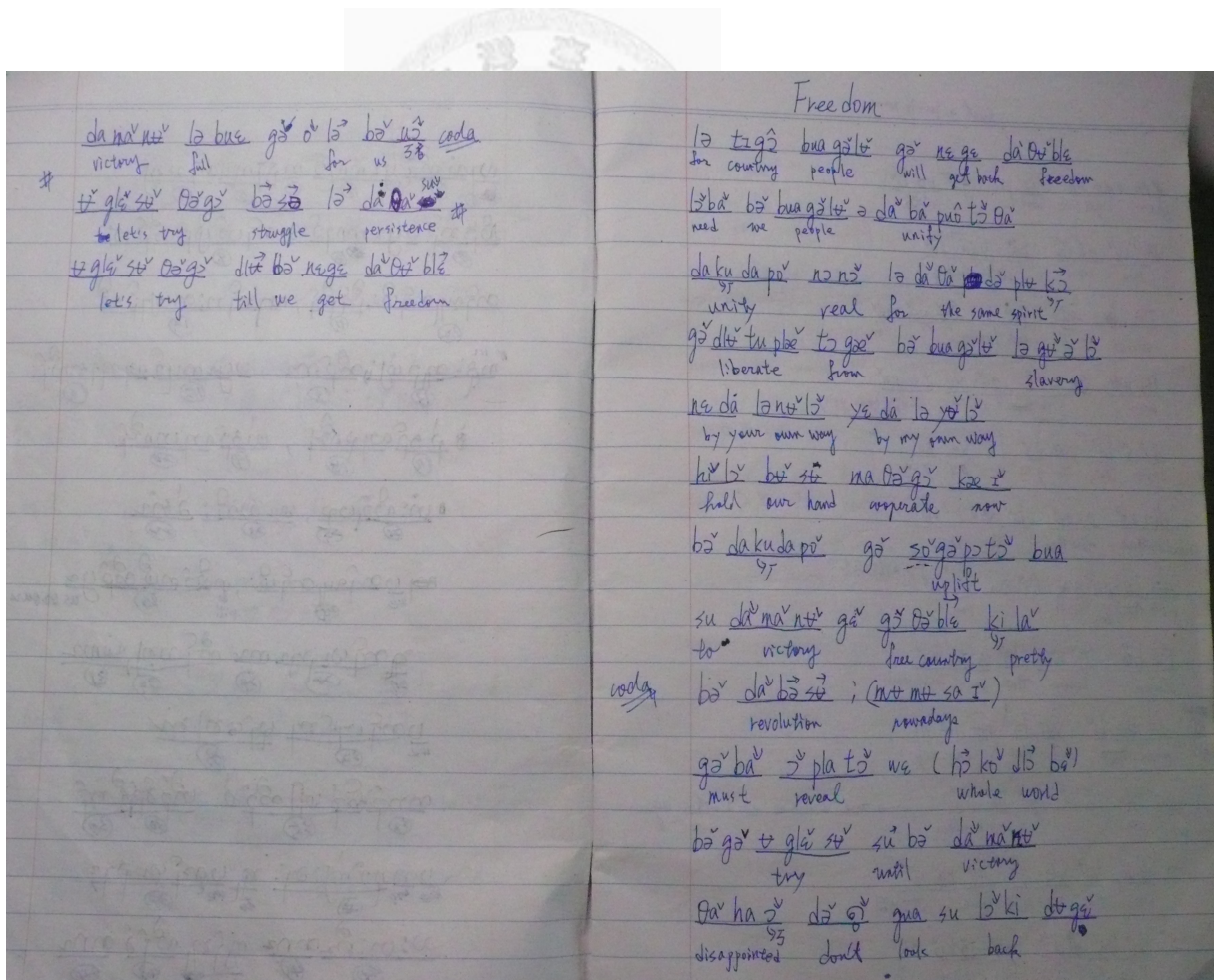 da maˇ nʉˇ lə buɛ gəˇ oˇ lə⃗ bəˇ uɔ̂ coda
victory full for us
# ʉˇ glɛˇ sʉˇ θəˇgɔˇ bə⃗ sə⃗ lə⃗ #
let's try struggle persistence
ʉ glɛˇ sʉˇ θəˇgɔˇ bəˇ nɛgɛ daˇ θʉˇ blɛ⃗
let's try till we get freedom
Freedom
bua gəˇlʉˇ gəˇ nɛ gɛ daˇ θʉˇblɛ
for country people will get back freedom
bəˇ bua gəˇlʉˇ ə daˇ baˇ puô tɔˇ θaˇ
need we people unify
da ku da poˇ nɔ nɔˇ lə daˇ θaˇ dəˇ plʉ kɔ⃗
unity real for the same spirit
gəˇ dlʉˇ tu plæˇ tɔ gæˇ bəˇ bua gəˇlʉˇ lə gʉˇ əˇ lɔˇ
liberate from slavery
nɛ dá lə nʉˇlɔˇ yɛ dá lə yʉˇlɔˇ
by your own way by my own way
hiˇ lɔˇ bʉˇ sʉ ma θəˇgɔˇ kæ ɪˇ
hold our hand cooperate now
bəˇ da ku da poˇ gəˇ soˇgəˇpɔ tɔˇ bua
uplift
su daˇ maˇ nʉˇ gɛˇ gɔˇ θəˇ blɛ⃗ ki laˇ
to victory free country pretty
coda bəˇ daˇ bə⃗ sʉ⃗ ; (mʉ mʉ sa ɪˇ)
revolution nowadays
gəˇ baˇ ɔˇ pla tɔˇ wɛ (hɔ⃗ koˇ dlɔ⃗ bɛˇ)
must reveal whole world
bəˇ gəˇ ʉ glɛˇ sʉˇ bəˇ daˇ maˇ nʉˇ
try until victory
θaˇ ha ɔˇ dəˇ gua su lɔˇ ki dʉ gɛˇ
disappointed don't look back